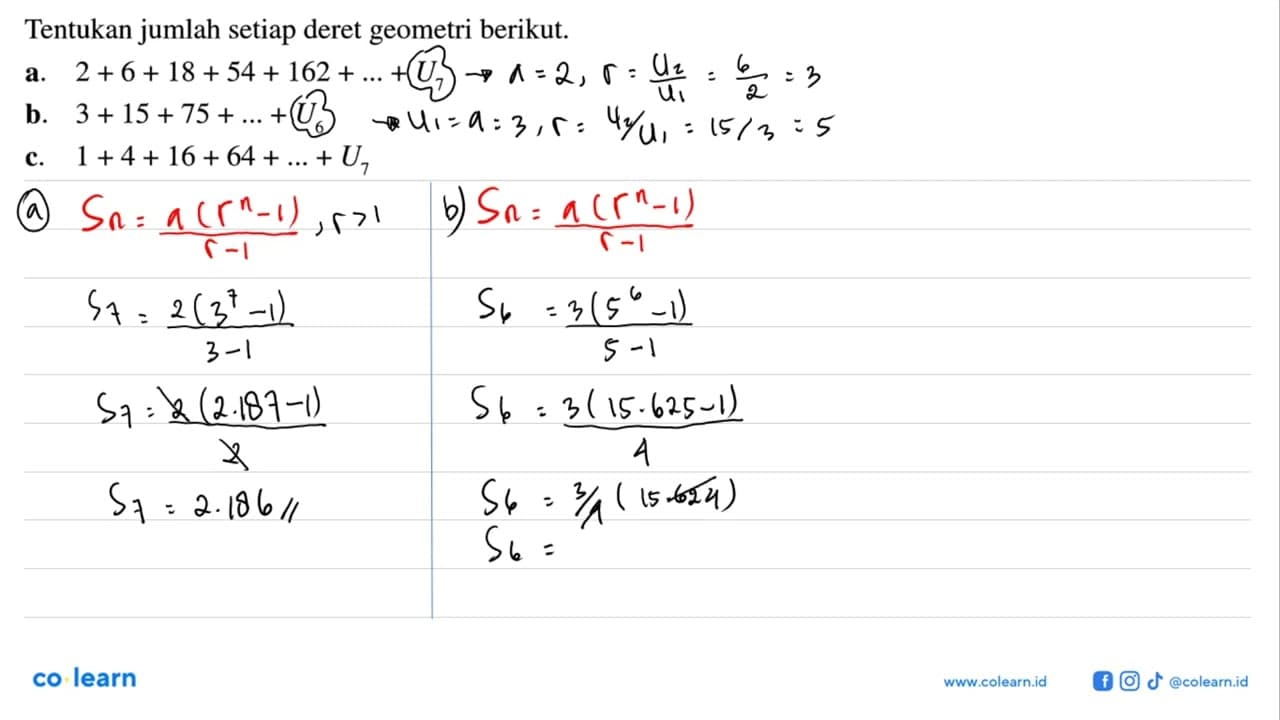 Tentukan jumlah setiap deret geometri berikut.
a. 2 + 6 + 18 + 54 + 162 + ... + U₇ → a = 2, r = U₂/U₁ = 6/2 = 3
b. 3 + 15 + 75 + ... + U₆ → U₁ = a = 3, r = U₂/U₁ = 15/3 = 5
c. 1 + 4 + 16 + 64 + ... + U₇
a Sn = a(rⁿ-1)/r-1, r>1
S7 = 2(3⁷-1)/3-1
S7 = 2(2.187-1)/2
S7 = 2.186//
b) Sn = a(rⁿ-1)/r-1
S6 = 3(5⁶-1)/5-1
S6 = 3(15.625-1)/4
S6 = 3/4(15.624)
S6 =
co learn
www.colearn.id
@colearn.id